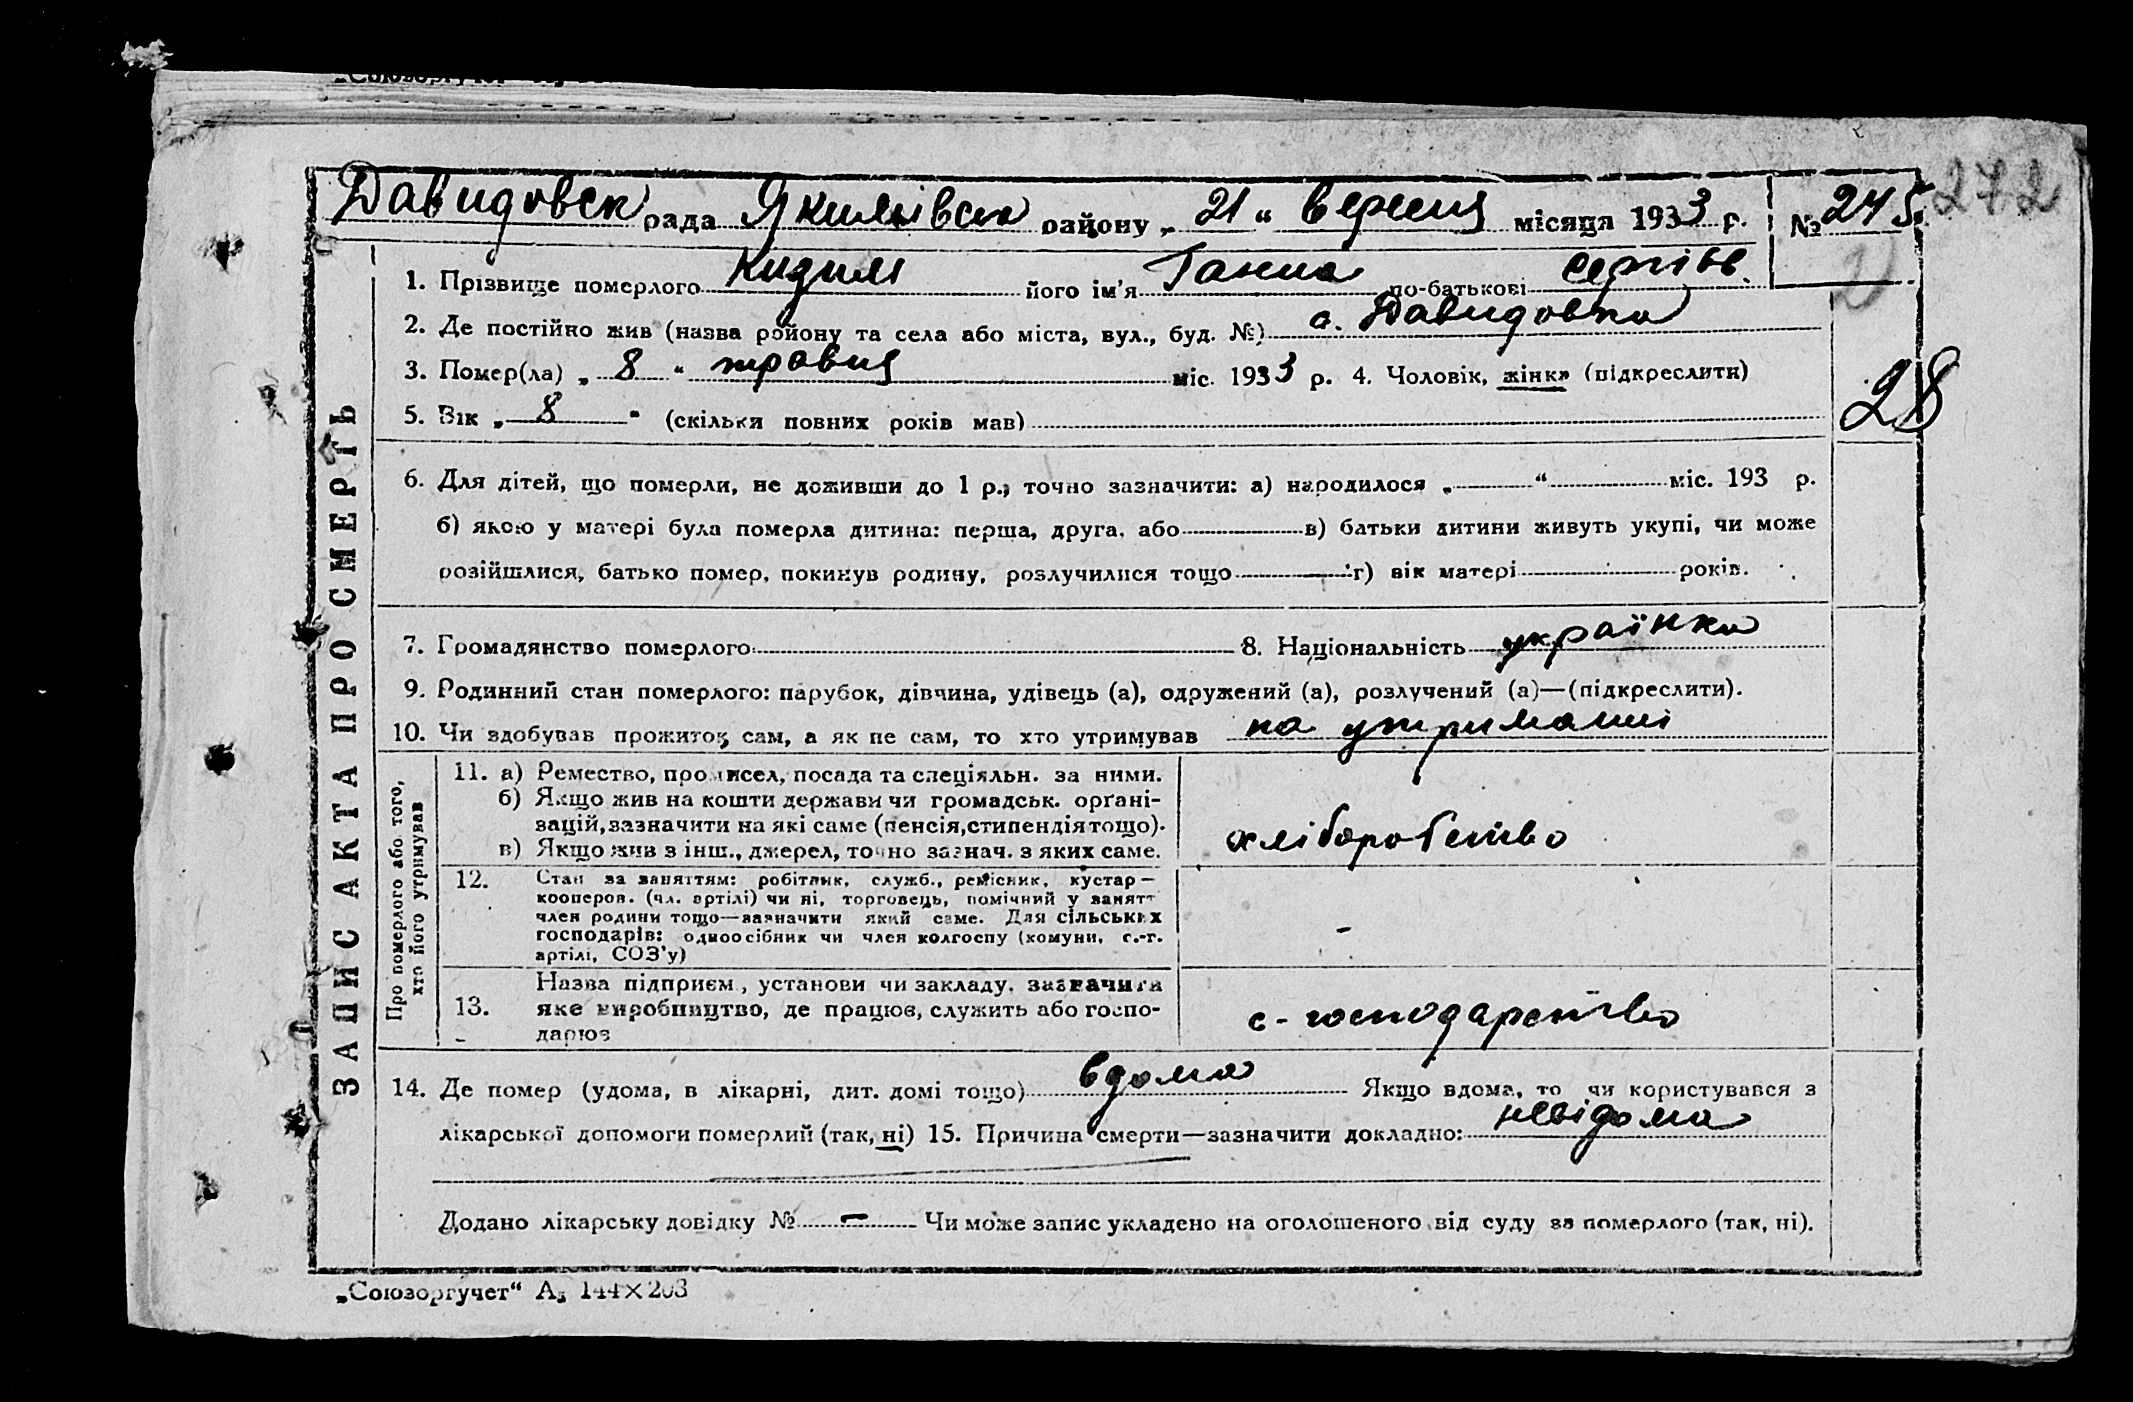 Давидовск рада Якимівськ району „ 21 " вересня місяця 1933 р. № 245 272
1. Прізвище померлого його ім'я Ганна по-батькові Сергіївн.
2
2. Де постійно жив (назва району та села або міста, вул., буд. №) с. Давидовка
3. Помер(ла) „ 8 " травня міс. 1933 р. 4. Чоловік, жінка (підкреслити)
28
5. Вік „ 8 " (скільки повних років мав)
6. Для дітей, що померли, не доживши до 1 р., точно зазначити: а) народилося „ " міс. 193 р.
б) якою у матері була померла дитина: перша, друга, або в) батьки дитини живуть укупі, чи може
розійшлися, батько помер, покинув родину, розлучилися тощо г) вік матері років.
7. Громадянство померлого 8. Національність українка
9. Родинний стан померлого: парубок, дівчина, удівець (а), одружений (а), розлучений (а)—(підкреслити).
10. Чи здобував прожиток сам, а як не сам, то хто утримував на утриманні
ЗАПИС АКТА ПРО СМЕРТЬ
Про померлого або того,
хто його утримував
11. а) Ремество, промисел, посада та спеціяльн. за ними.
б) Якщо жив на кошти держави чи громадськ. орґані-
зацій, зазначити на які саме (пенсія, стипендія тощо).
в) Якщо жив з інш., джерел, точно зазнач. з яких саме.
хліборобство
12. Стан за заняттям: робітник, служб., ремісник, кустар—
кооперов. (чл. артілі) чи ні, торговець, помічний у занятт
член родини тощо—зазначити який саме. Для сільських
господарів: одноосібник чи член колгоспу (комуни, с.-г.
артілі, СОЗ'у)
-
13. Назва підприєм., установи чи закладу, зазначити
яке виробництво, де працює, служить або госпо-
дарює
с-господарство
14. Де помер (удома, в лікарні, дит. домі тощо) вдома Якщо вдома, то чи користувався з
лікарської допомоги померлий (так, ні) 15. Причина смерти—зазначити докладно: невідома
Додано лікарську довідку № — Чи може запис укладено на оголошеного від суду за померлого (так, ні).
„Союзоргучет" А5 144×203